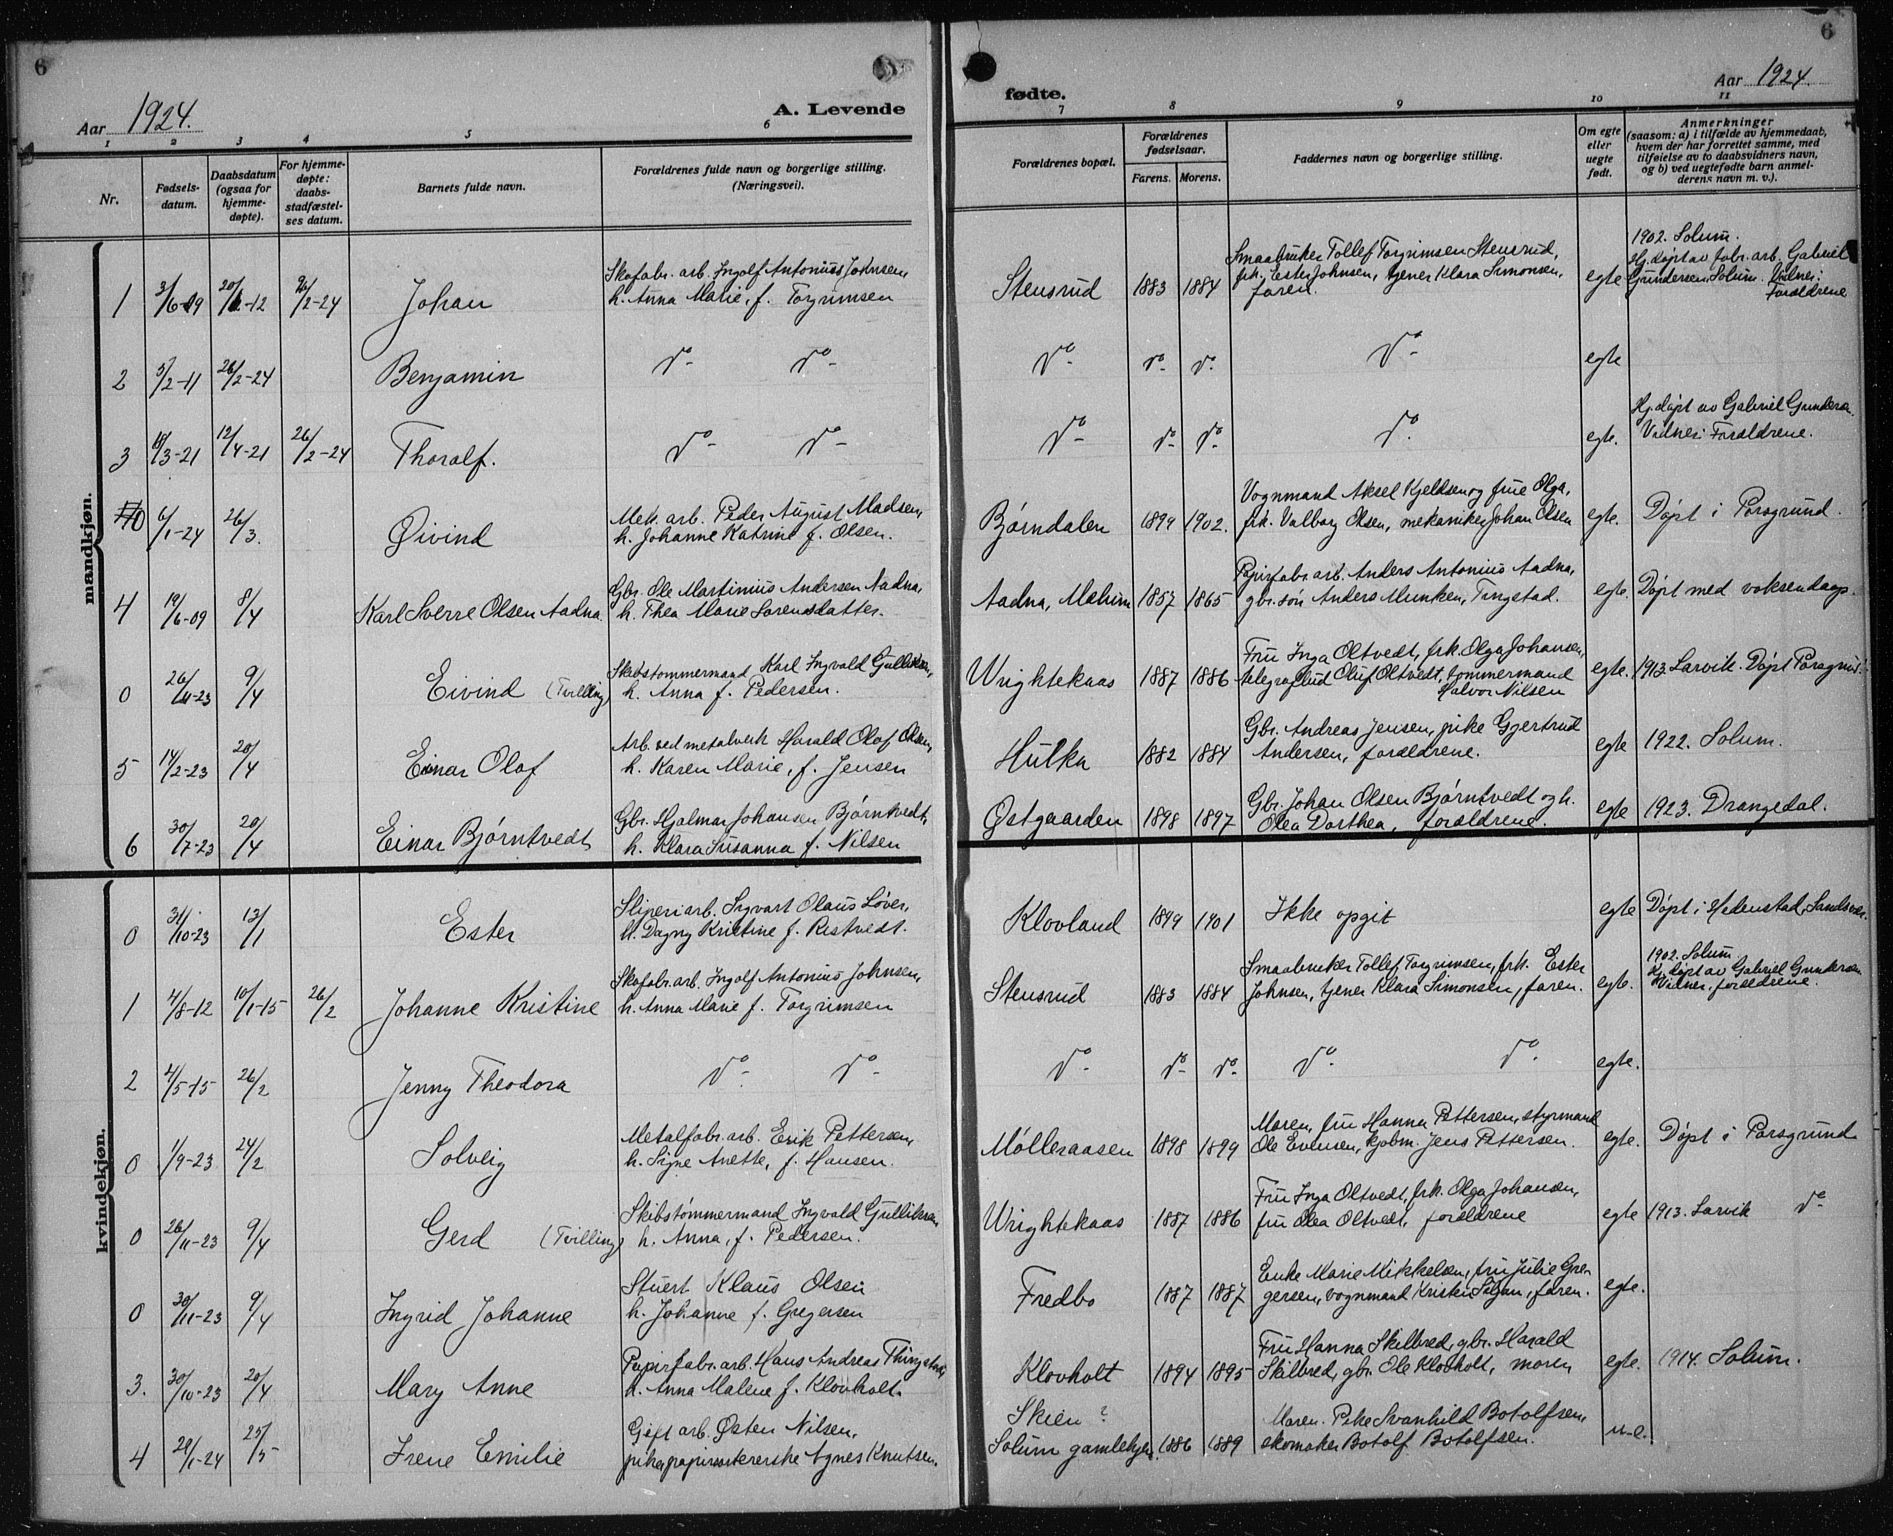 6
Aar 1924.
A. Levende
1 2 3 4 5 6
Nr.
Fødsels-
datum.
Daabsdatum
(ogsaa for
hjemme-
døpte).
For hjemme-
døpte:
daabs-
stadfæstel-
ses datum.
Barnets fulde navn.
Forældrenes fulde navn og borgerlige stilling.
(Næringsvei).
mandkjøn.
Skofabr. arb. Ingolf Antonius Johnsen,
1 3/6-09 20/12-12 26/2-24 Johan h. Anna Marie, f. Torgrimsen
2 5/2-11 26/2-24 Benjamin do- do-
3 18/3-21 12/4-21 26/2-24 Thoralf. do- do-
Mek. arb. Peder August Madsen,
0 6/1-24 26/3. Øivind h. Johanne Katrine f. Olsen.
Gbr. Ole Martinius Andersen Aadna,
4 19/6-09 8/4 Karl Sverre Olsen Aadna. h. Thea Marie Sørensdatter.
Skibstømmermand Karl Ingvald Gulliksen,
0 26/11-23 9/4 Eivind (Tvilling) h. Anna f. Pedersen.
Arb. ved metalverk Harald Olof Olsen,
5 14/2-23 20/4 Einar Olof h. Karen Marie, f. Jensen
Gbr. Hjalmar Johansen Bjørntvedt,
6 30/7-23 20/4 Einar Bjørntvedt h. Klara Susanna f. Nilsen
kvindekjøn.
Sliperiarb. Sigvart Olaus Løver,
0 31/10-23 13/1 Ester h. Dagny Kristine f. Ristvedt.
Skofabr. arb. Ingolf Antonius Johnsen,
1 4/8-12 10/1-15 26/2 Johanne Kristine h. Anna Marie f. Torgrimsen
2 4/5-15 26/2 Jenny Theodora do- do-
Metalfabr. arb. Erik Pettersen,
0 1/9-23 24/2 Solveig h. Signe Anette, f. Hansen.
Skibstømmermand Ingvald Gulliksen,
0 26/11-23 9/4 Gerd (Tvilling) h. Anna, f. Pedersen.
Stuert Klaus Olsen
0 30/11-23 9/4 Ingrid Johanne h. Johanne f. Gregersen
Papirfabr. arb. Hans Andreas Thingstad,
3. 30/10-23 20/4 Mary Anne h. Anna Malene f. Klovholt.
Gift arb. Østen Nilsen,
4 29/1-24 25/5 Irene Emilie pike, Agnes Knutsen.
6
fødte.
Aar 1924.
7 8 9 10 11
Forældrenes bopæl.
Forældrenes
fødselsaar.
Farens. Morens.
Faddernes navn og borgerlige stilling.
Om egte
eller
uegte
født.
Anmerkninger
(saasom: a) i tilfælde av hjemmedaab,
hvem der har forrettet samme, med
tilføielse av to daabsvidners navn,
og b) ved uegtefødte barn anmel-
derens navn m. v.).
Smaabruker Tollef Torgrimsen Stensrud, 1902. Solum.
frk. Ester Johnsen, tjener Klara Simonsen, Hj.døpt av fabr. arb. Gabriel
Stensrud 1883 1884 faren. egte Gundersen, Solum. Vidner:
Forældrene
do- do- do- do- egte
Hj.døpt av Gabriel Gundersen.
do- do- do- do. egte. Vidner: Forældrene.
Vognmand Aksel Kjeldsen og frue Olga,
Bjørndalen 1899 1902. frk. Valborg Olsen, mekaniker Johan Olsen egte. Døpt i Porsgrund.
Papirfabr. arb. Anders Antonius Aadna,
Aadna, Mælum 1857 1865 gbr. søn Anders Munken, Tingstad. egte. Døpt med voksendaap.
Fru Inga Oltvedt, frk. Olga Johansen,
Wrightekaas 1887 1886 telegrafbud Oluf Oltvedt, tømmermand egte. 1913. Larvik. Døpt Porsgrund.
Halvor Nilsen
Gbr. Andreas Jensen, pike Gjertrud
Hulka 1882 1884 Andersen, forældrene. egte 1922. Solum.
Gbr. Johan Olsen Bjørntvedt og h.
Østgaarden 1898 1897 Olea Dorthea, forældrene. egte 1923. Drangedal.
Klovland 1899 1901 Ikke opgit egte Døpt i Hedenstad, Sandsvær.
Smaabruker Tollef Torgrimsen, frk. Ester 1902. Solum
Stensrud 1883 1884 Johnsen, tjener Klara Simonsen, faren. egte. Hj.døpt av Gabriel Gundersen
Vidner, forældrene.
do- do- do- do- do- egte.
Moren, fru Hanna Pettersen, styrmand
Mølleraasen 1898 1899 Ole Evensen, kjøbm. Jens Pettersen. egte. Døpt i Porsgrund
Fru Inga Oltvedt, frk. Olga Johansen,
Wrightekaas 1887 1886 fru Olea Oltvedt, forældrene egte 1913. Larvik do-
Enke Marie Mikkelsen, fru Julie Gre-
Fredbo 1887 1887 gersen, vognmand Kristen, faren. egte.
Fru Hanna Skilbred, gbr. Harald
Klovholt 1894 1895 Skilbred, gbr. Ole Klovholt, moren egte. 1914. Solum.
Skien? Moren. Pike Svanhild Botolfsen,
Solum gamlehjem. 1886 1889 skomaker Botolf Botolfsen. u.e.